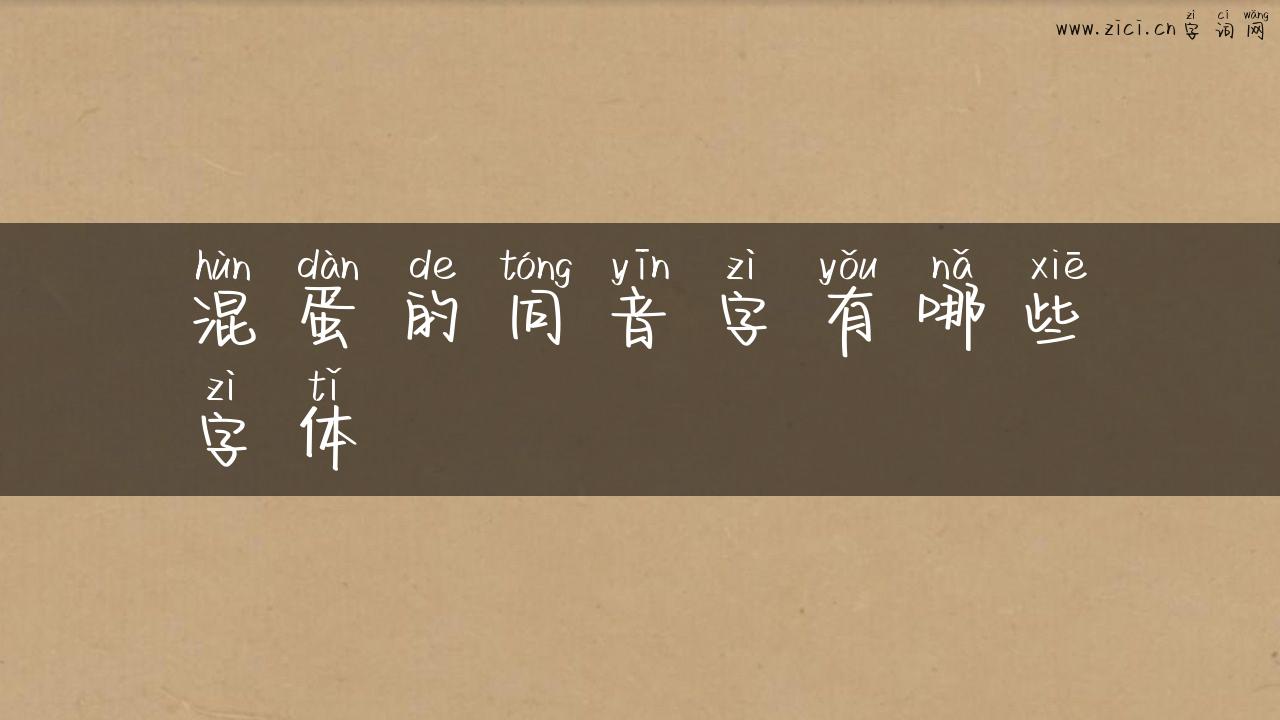 zì cí wǎng
www.zici.cn 字词网
hùn dàn de tóng yīn zì yǒu nǎ xiē
混蛋的同音字有哪些
zì tǐ
字体